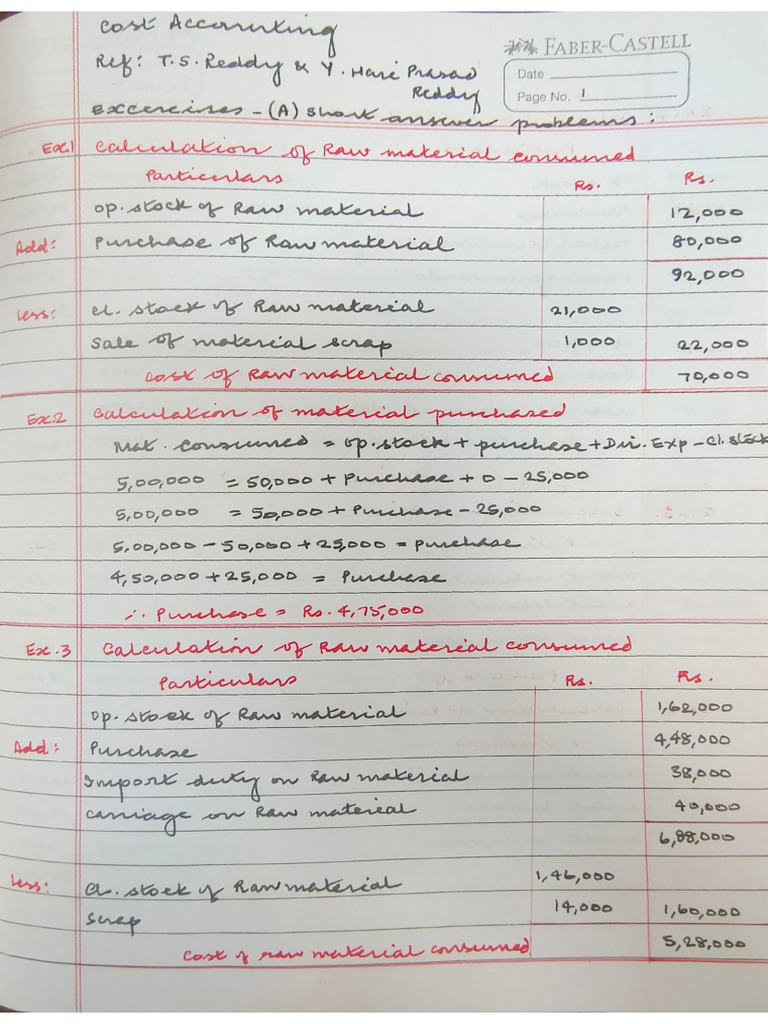 Cost Accounting
Ref: T.S. Reddy & Y. Hari Prasad
Reddy
FABER-CASTELL
Date
Page No. 1
Excercises - (A) Short answer problems:
Ex.1 Calculation of Raw material consumed
Particulars Rs. Rs.
Op. stock of Raw material 12,000
Add: Purchase of Raw material 80,000
92,000
Less: Cl. stock of Raw material 21,000
Sale of material scrap 1,000 22,000
Cost of Raw material consumed 70,000
Ex.2 Calculation of material purchased
Mat. Consumed = Op. stock + purchase + Dir. Exp - Cl. stock
5,00,000 = 50,000 + Purchase + 0 - 25,000
5,00,000 = 50,000 + Purchase - 25,000
5,00,000 - 50,000 + 25,000 = purchase
4,50,000 + 25,000 = Purchase
∴ Purchase = Rs. 4,75,000
Ex.3 Calculation of Raw material consumed
Particulars Rs. Rs.
Op. stock of Raw material 1,62,000
Add: Purchase 4,48,000
Import duty on Raw material 38,000
Carriage on Raw material 40,000
6,88,000
Less: Cl. stock of Raw material 1,46,000
Scrap 14,000 1,60,000
Cost of raw material consumed 5,28,000